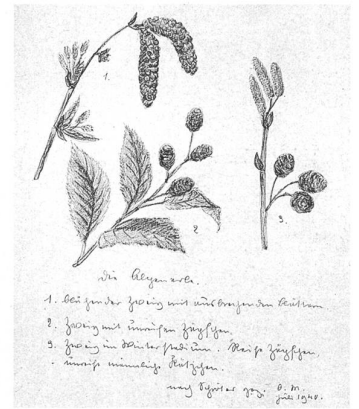 1.
2
3.
Die Alpenerle.
1. blühender Zweig mit ausbrechenden Blättern
2. Zweig mit unreifen Zäpfchen.
3. Zweig im Winterstadium. Reife Zäpfchen,
unreife männliche Kätzchen.
nach Schröter gez. O. M.
Juli 1940.